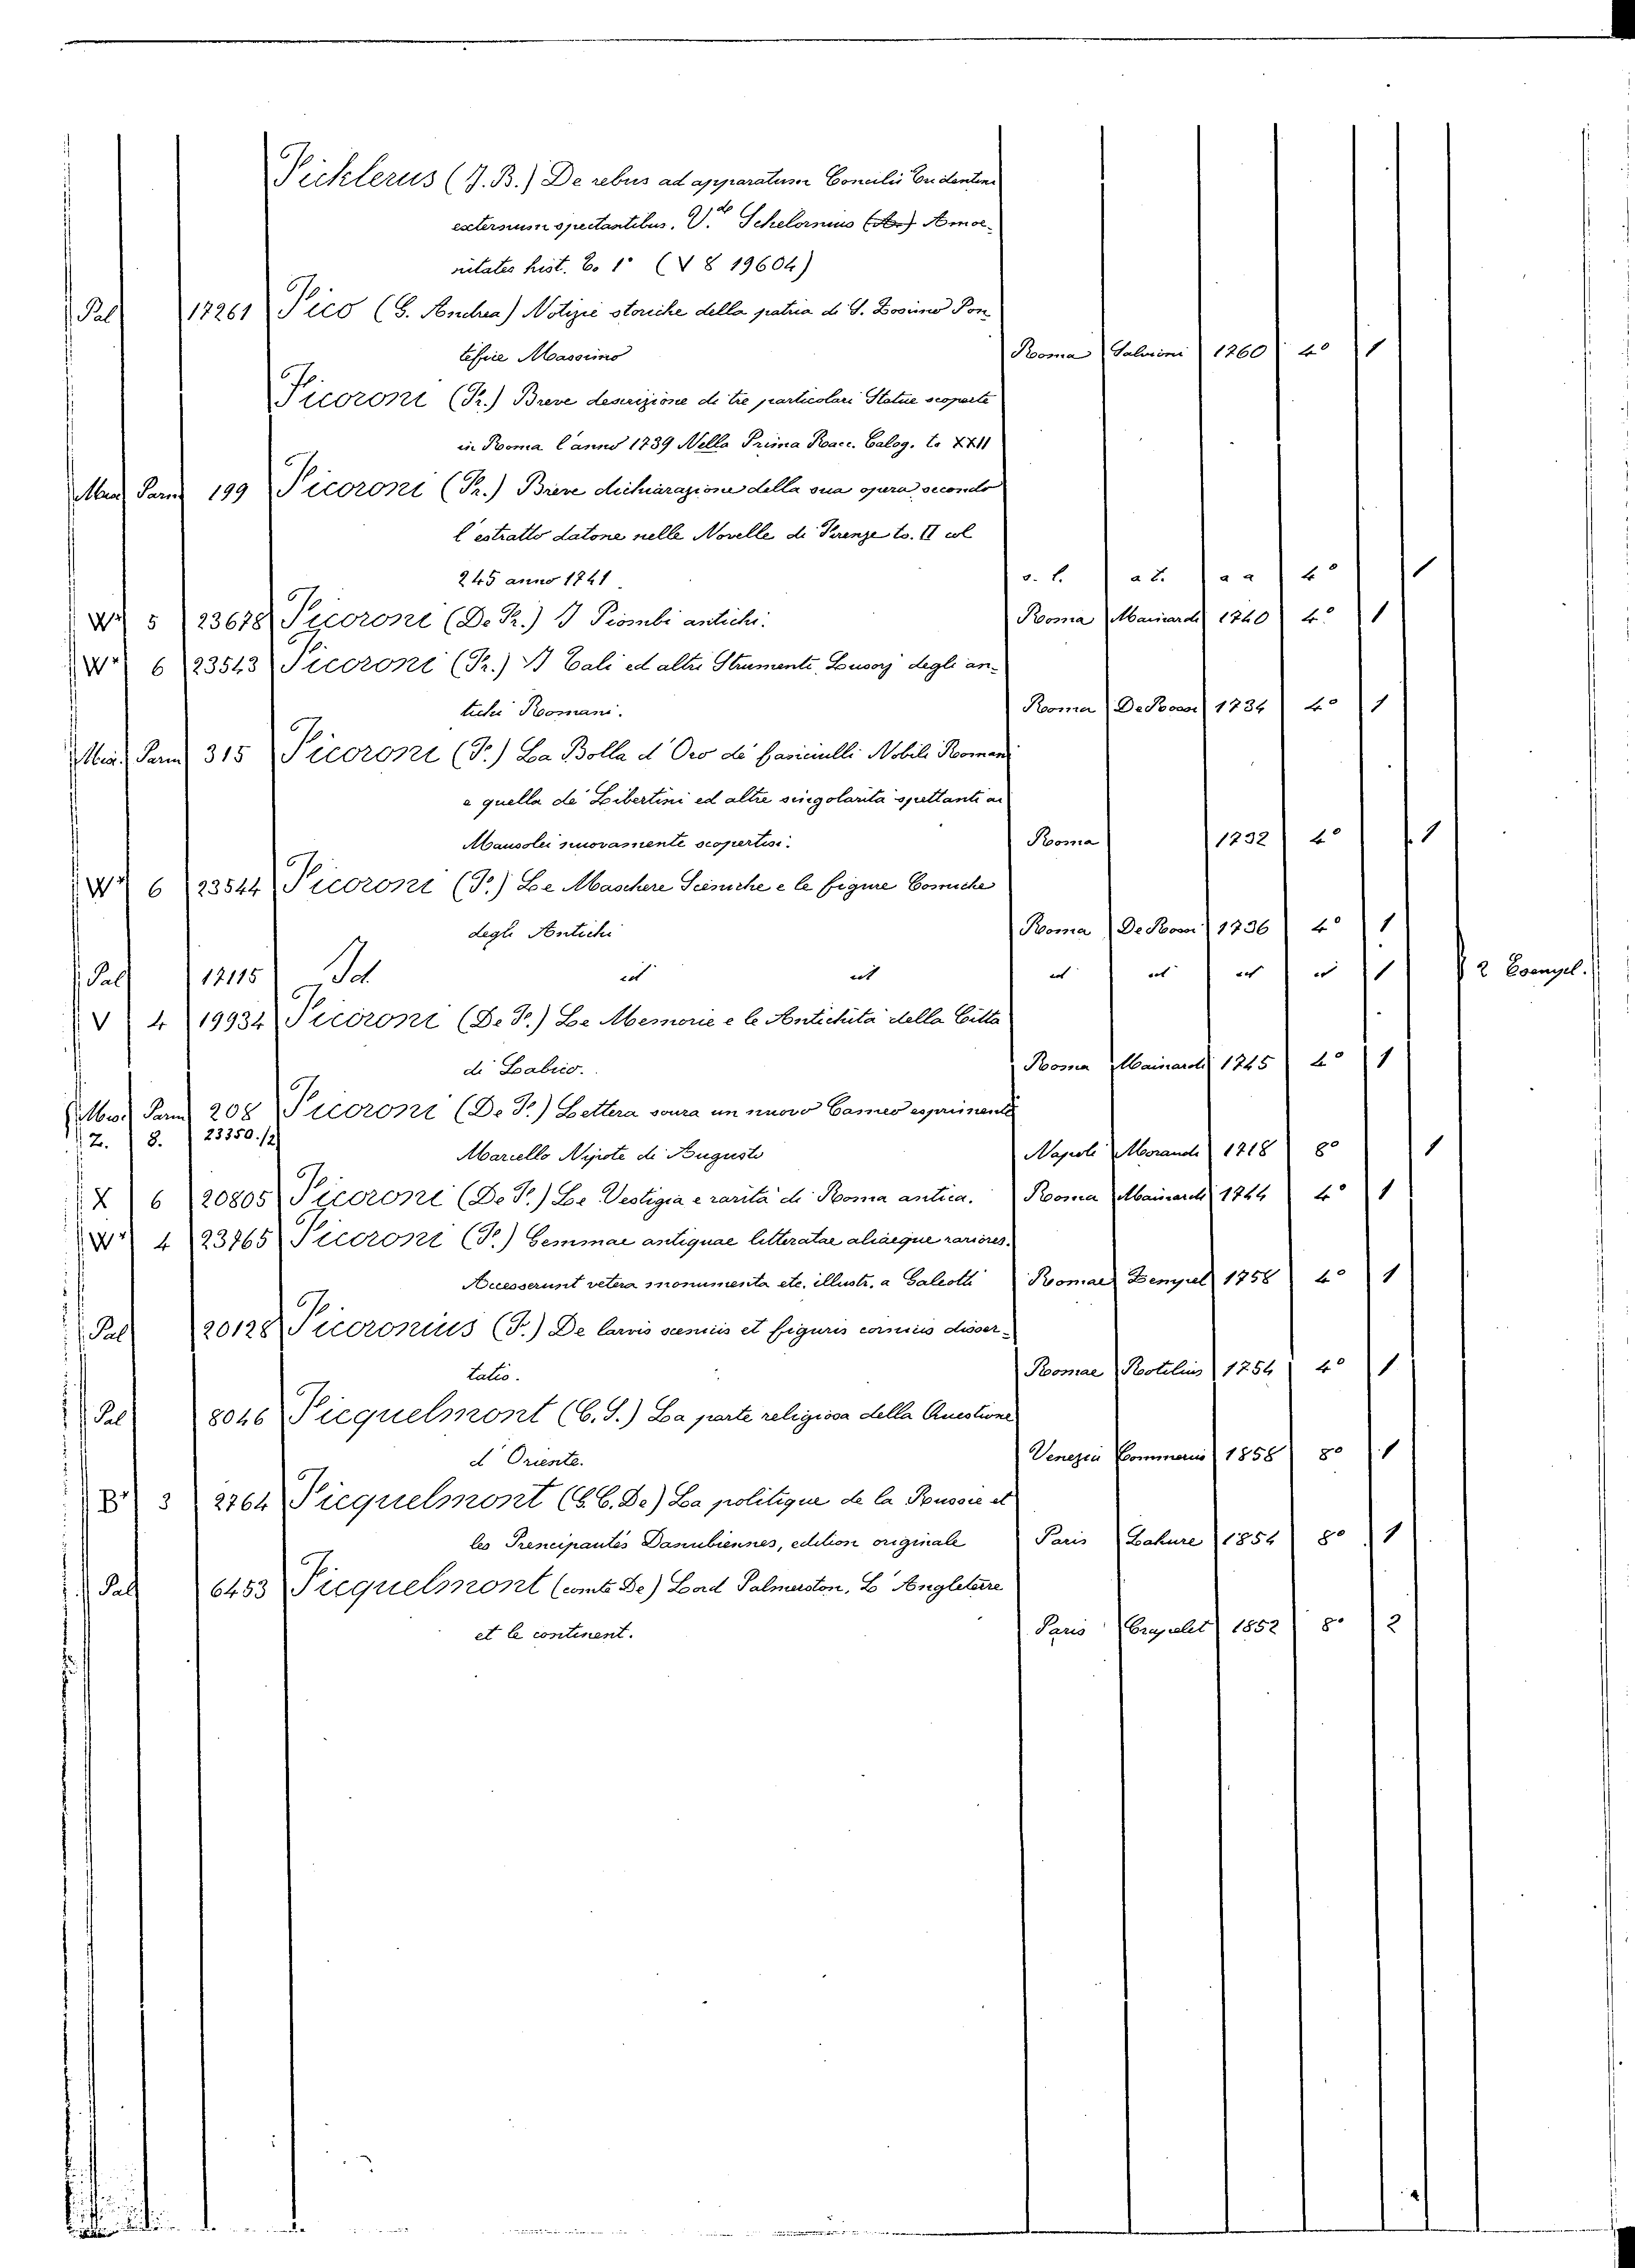 Ficklerus (J. B.) De rebus ad apparatum Concilii Tridentini
externum spectantibus. V.de Schelornius (A.) Amoe-
nitates hist. to 1° (V 8 19604)
Pal 17261 Fico (G. Andrea) Notizie storiche della patria di S. Zosimo Pon
tefice Massimo Roma Salvioni 1760 4° 1
Ficoroni (Fr.) Breve descrizione di tre particolari Statue scoperte
in Roma l'anno 1739 Nella Prima Racc. Calog. to XXII
Misc. Parm 199 Ficoroni (Fr.) Breve dichiarazione della sua opera secondo
l'estratto datone nelle Novelle di Firenze to. II col
245 anno 1741 s. l. a t. a a 4° 1
W' 5 23678 Ficoroni (De Fr.) I Piombi antichi. Roma Mainardi 1740 4° 1
W' 6 23543 Ficoroni (Fr.) I Tali ed altri Strumenti Lusorj degli an-
tichi Romani. Roma De Rossi 1734 4° 1
Misc. Parm 315 Ficoroni (F.) La Bolla d'Oro de' fanciulli Nobili Romani
e quella de' Libertini ed altre singolarità spettanti a
Mausolei nuovamente scopertisi. Roma 1732 4° 1
W' 6 23544 Ficoroni (F.) Le Maschere Sceniche e le figure Comiche
degli Antichi Roma De Rossi 1736 4° 1
Pal 17115 Id. id id id id id id 1 2 Esempl.
V 4 19934 Ficoroni (De F.) Le Memorie e le Antichità della Città
di Labico. Roma Mainardi 1745 4° 1
Misc. Parm 208 Ficoroni (De F.) Lettera sovra un nuovo Cameo esprimente
Z. 8. 23350./2 Marcello Nipote di Augusto Napoli Morandi 1718 8° 1
X 6 20805 Ficoroni (De F.) Le Vestigia e rarità di Roma antica. Roma Mainardi 1744 4° 1
W' 4 23765 Ficoroni (F.) Gemmae antiquae litteratae aliaeque rariores.
Accesserunt vetera monumenta etc. illustr. a Galeotti Romae Zempel 1758 4° 1
Pal 20128 Ficoronius (F.) De larvis scenicis et figuris comicis disser-
tatio. Romae Rotilius 1754 4° 1
Pal 8046 Ficquelmont (C. S.) La parte religiosa della Questione
d'Oriente. Venezia Commercio 1858 8° 1
B' 3 2764 Ficquelmont (C. C. De) La politique de la Russie et
les Prencipautés Danubiennes, edition originale Paris Lahure 1854 8° 1
Pal 6453 Ficquelmont (comte De) Lord Palmerston, L'Angleterre
et le continent. Paris Crapelet 1852 8° 2